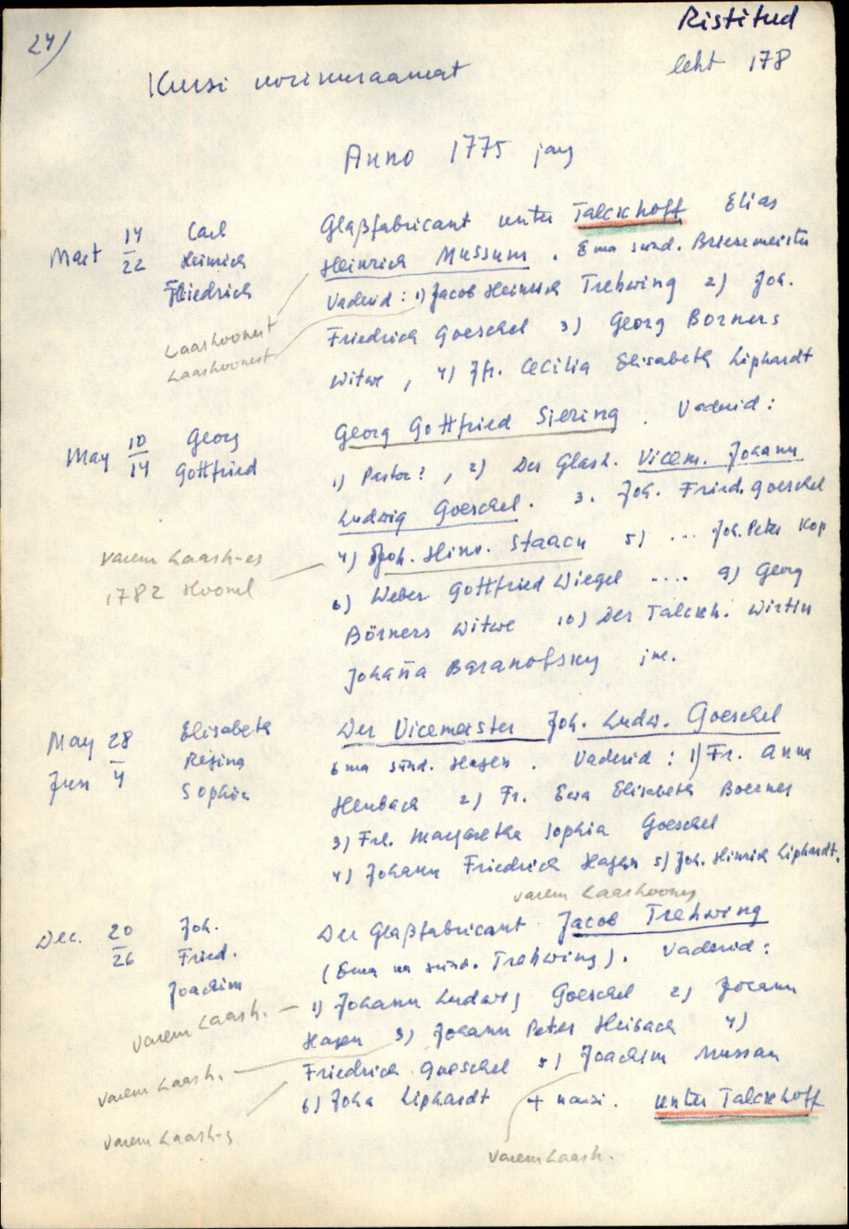 24)
Ristitud
leht 178
Kursi
Anno 1775 jarg
Mart 14/22 Carl Heinrich Friedrich
Glaßfabricant unter Talckhoff Elias
Heinrich Mussum. Ema sünd.
Vaderid: 1) Jacob Heinrich Trehwing 2) Joh.
Friedrich Goeschel 3) Georg Borners
Witwe, 4) Jfr. Cecilia Elisabeth Liphardt
Laashoonest
Laashoonest
May 10/14 Georg Gottfried
Georg Gottfried Siering. Vaderid:
1) Pastor?, 2) Der Glash. Vicem. Johann
Ludwig Goeschel. 3. Joh. Fried. Goeschel
4) Joh. Hinr. Staack 5) ... Joh. Peter Kop
6) Weber Gottfried Wiegel .... 9) Georg
Börners Witwe 10) Der Talcksh. Wirtin
Johaña Baranofsky jne.
varem Laash-es
1782
May 28 / Jun 4 Elisabeth Regina Sophia
Der Vicemeister Joh. Ludw. Goeschel
Ema sünd. Hagen. Vaderid: 1) Fr. Anna
Heubach 2) Fr. Eva Elisabeth Boerner
3) Frl. Margaretha Sophia Goeschel
4) Johann Friedrich Hagen 5) Joh. Hinrich Liphardt.
varem Laashoones
Dec. 20/26 Joh. Fried. Joachim
Der Glaßfabricant Jacob Trehwing
(Ema on sünd. Trehwing). Vaderid:
1) Johann Ludwig Goeschel 2) Johann
Hagen 3) Johann Peter Heibach 4)
Friedrich Goeschel 5) Joachim Mussau
6) Joha Liphardt + naisi. unter Talckhoff
varem Laash.
varem Laash.
varem Laash-s
varem Laash.